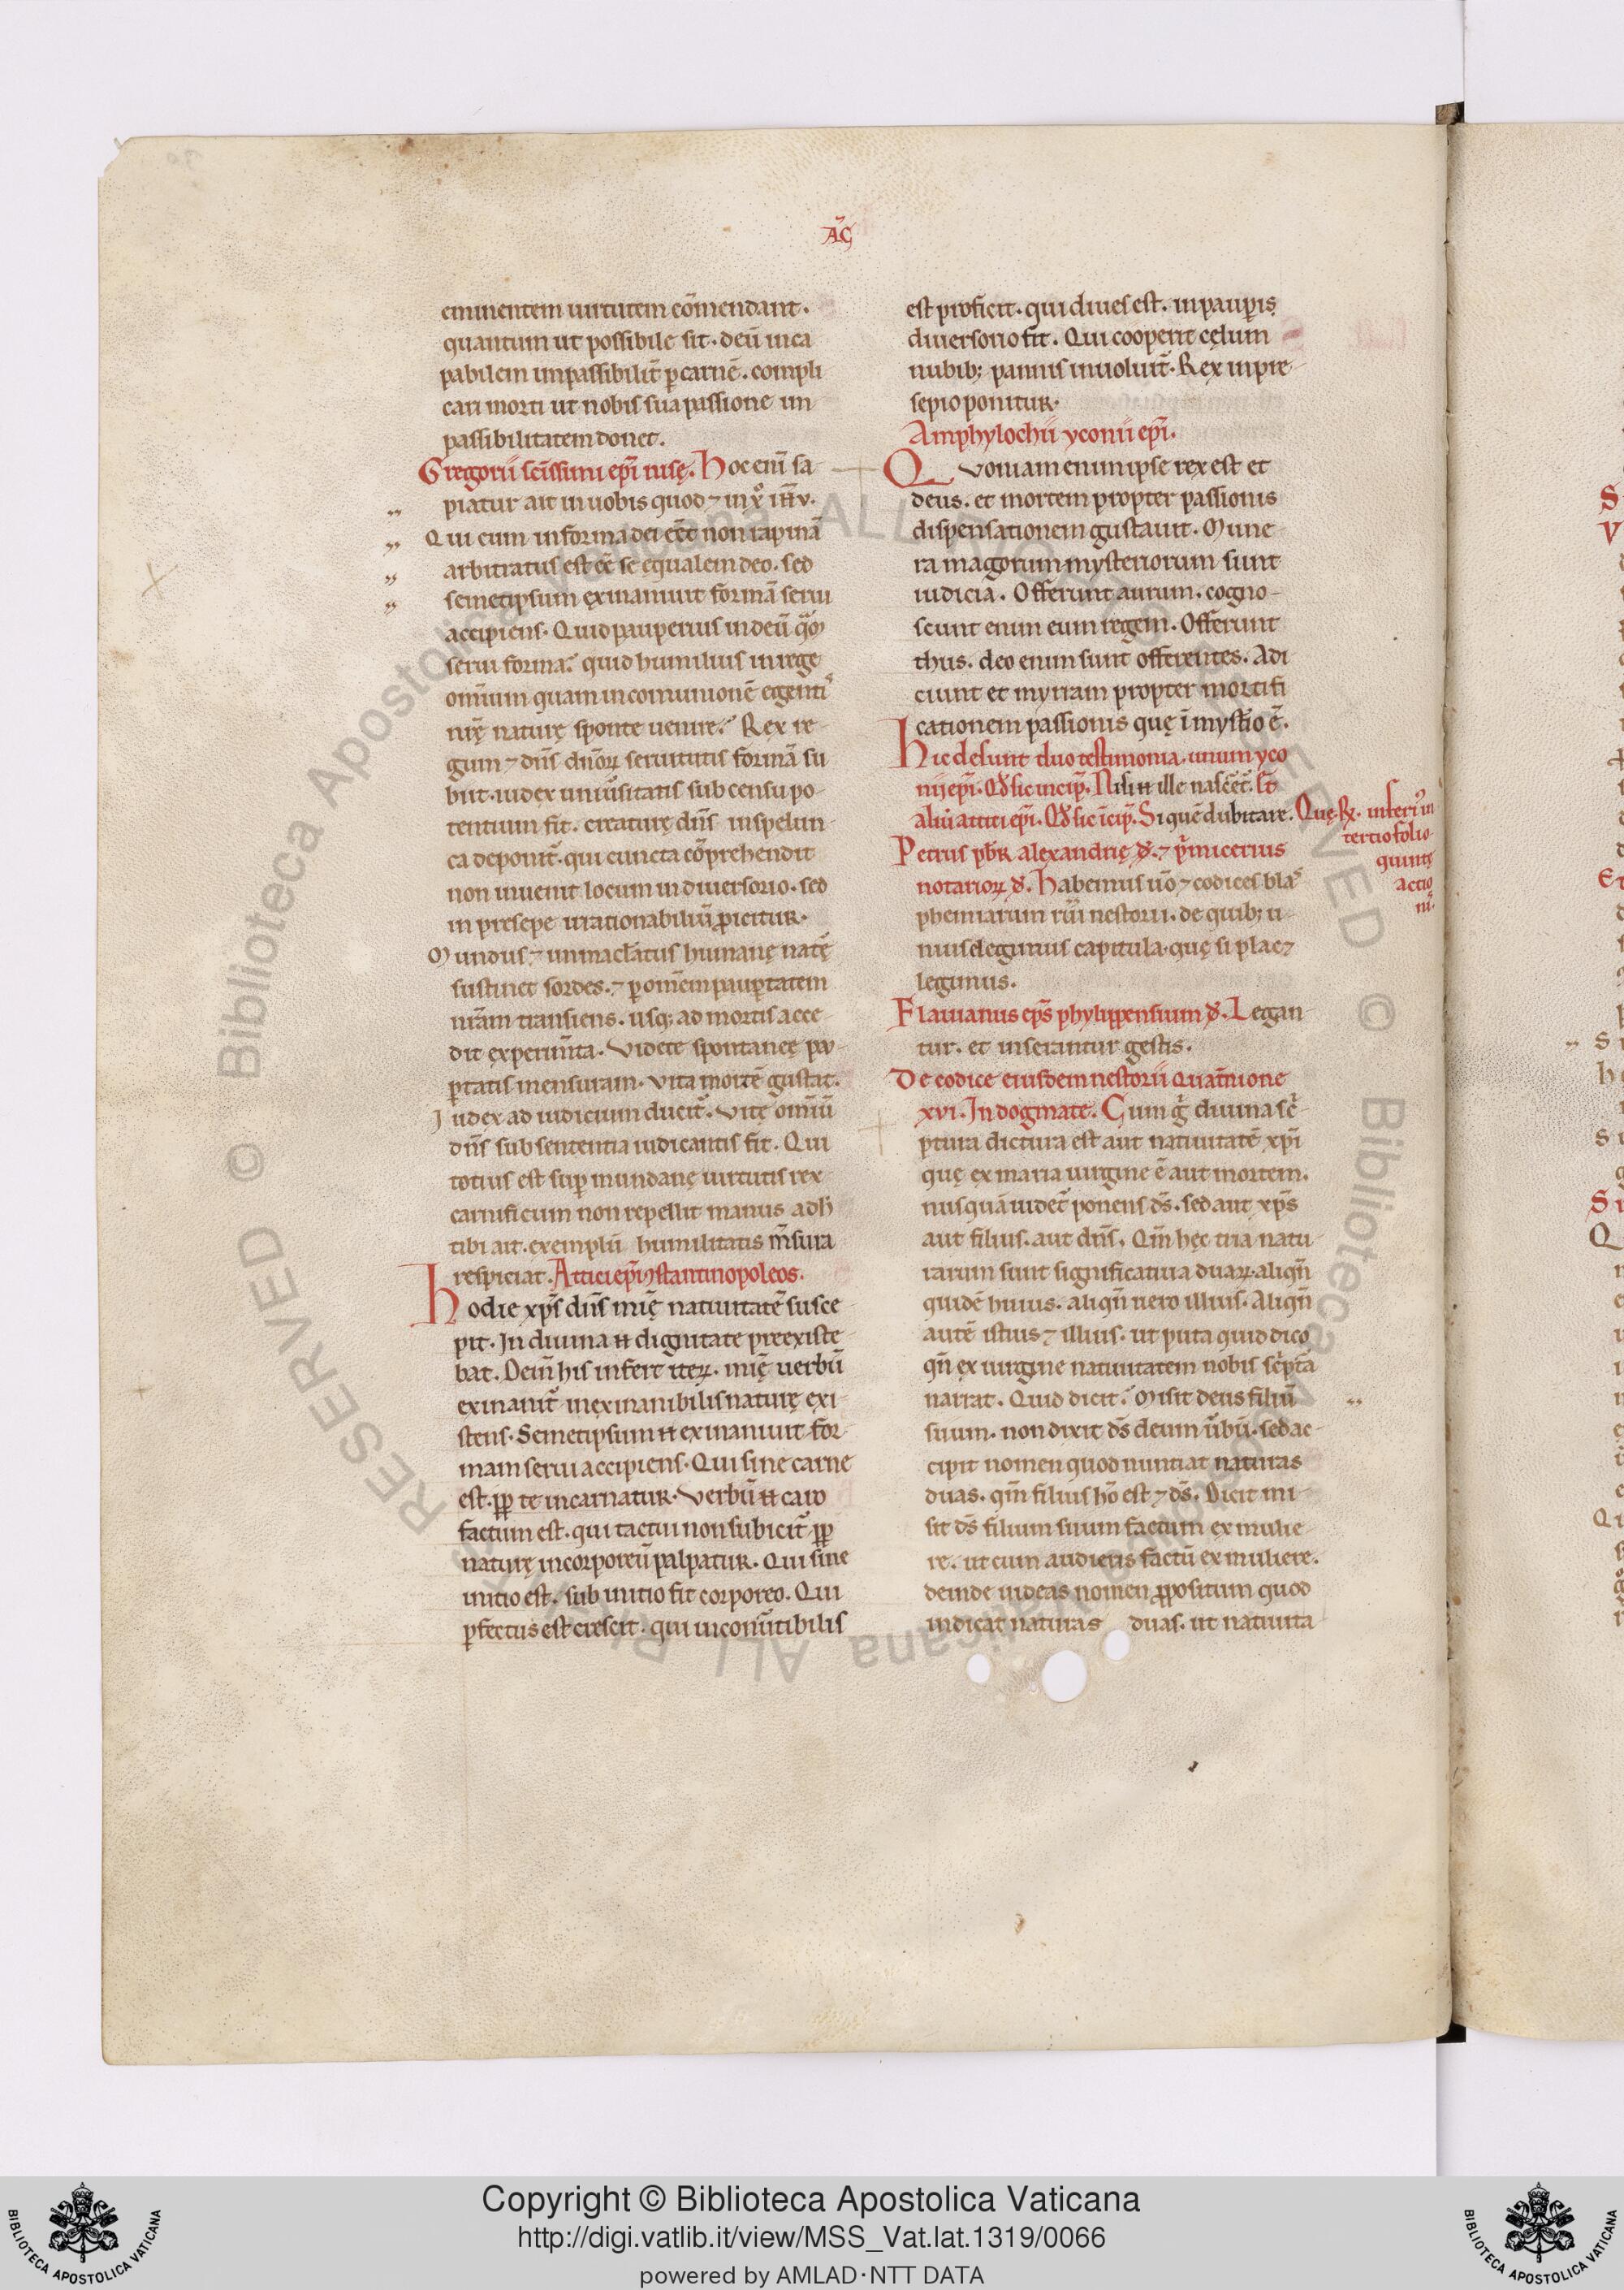 AC̃
eminentem uirtutem cõmendant.
quantum ut possibile sit. deũ inca
pabilem impassibilit̃ p carnẽ. compli
cari morti ut nobis sua passione im
passibilitatem donet.
Gregorii sc̃issimi epĩ nisę. Hoc enĩ sa
piatur ait in uobis quod ⁊ in xp̃o ihũ.
Qui cum in forma dei eẽt non rapinã
arbitratus est eẽ se ęqualem deo. sed
semetipsum exinaniuit formã serui
accipiens. Quid pauperius in deũ
serui forma? quid humilius in rege
omnium quam in comunionẽ egenti
nrę̃ naturę sponte uenire? Rex re
gum ⁊ dñs dñoꝝ seruitutis formã su
biit. iudex uniũsitatis sub censu po
tentium fit. creaturę dñs in spelun
ca deponit̃. qui cuncta cõprehendit
non inuenit locum in diuersorio. sed
in presepe irrationabiliũ proicitur.
Mundus ⁊ inmacl̃atus humanę natę̃
sustinet sordes. ⁊ p om̃em paup̃tatem
nr̃am transiens. usq; ad mortis acce
dit experim̃ta. Videte spontaneę pau
p̃tatis mensuram. Vita mortẽ gustat.
Iudex ad iudicium ducit̃. Vitę omiũ
dñs sub sententia iudicantis fit. Qui
totius est sup mundanę uirtutis rex
carnificum non repellit manus. ad h̃
tibi ait. exemplũ humilitatis m̃sura
respiciat. Attici epĩ ↄstantinopoleos.
Hodie xpc̃ dñs mię̃ natiuitatẽ susce
pit. In diuina n̄ dignitate preexiste
bat. Dein̄ his infert iteꝝ. mię̃ uerbũ
exinanit̃ inexinanibilis naturę exi
stens. Semetipsum n̄ exinaniuit for
mam serui accipiens. Qui sine carne
est. ꝓp te incarnatur. Verbũ n̄ caro
factum est. qui tactui non subicit̃ ꝓp
naturę incorporeũ palpatur. Qui sine
initio est. sub initio fit corporeo. Qui
ꝑfectus est crescit. qui inconũtibilis
est proficit. qui diues est. in paupis
diuersorio fit. Qui cooperit cęlum
nubib; pannis inuoluit̃. Rex in pre
sepio ponitur.
Amphylochii yconii epĩ.
Quoniam enim ipse rex est et
deus. et mortem propter passionis
dispensationem gustauit. Mune
ra magorum mysteriorum sunt
iudicia. Offerunt aurum. cogno
scunt enim eum regem. Offerunt
thus. deo enim sunt offerentes. Adi
ciunt et myrram propter mortifi
cationem passionis quę ĩ myst̃io ẽ.
Hic desunt duo testimonia. unum yco
nij epĩ. Qđ sic incip̃. Nisi n̄ ille nascẽt̃. Et
aliũ attici epĩ. Qđ sic ĩcip̃. Si quẽ dubitare. Quę Rx̃. inferiꝰ in
tertio folio
quintę
actio
nis.
Petrus pb̃r alexandrię đ. ⁊ p̃micerius
notarioꝝ đ. Habemus ũo ⁊ codices blas
phemiarum rũ nestorii. de quib; u
nius legimus capitula. quę si placꝫ
legimus.
Flauianus epc̃ phylippensium đ. Legan
tur. et inserantur gestis.
De codice eiusdem nestorii quat̃nione
xvi. In dogmate. Cum g̃ diuina sc̃
ptura dictura est aut natiuitatẽ xpĩ
quę ex maria uirgine ẽ aut mortem.
nusquã uidet̃ ponens dc̃. sed aut xpc̃
aut filius. aut dñs. Qm̃ hęc tria natu
rarum sunt significatiua duaꝝ. aliqñ
quidẽ huius. aliqñ uero illius. Aliqñ
autẽ istius ⁊ illius. ut puta quid dico
qñ ex uirgine natiuitatem nobis sc̃pt̃a
narrat. Quid dicit? Misit deus filiũ
suum. non dixit dc̃ deum ũbũ. sed ac
cipit nomen quod nuntiat naturas
duas. qm̃ filius hõ est ⁊ dc̃. Dicit mi
sit dc̃ filium suum factum ex mulie
re. ut cum audieris factũ ex muliere.
deinde uideas nomen ꝓpositum quod
indicat naturas duas. ut natiuita
Copyright © Biblioteca Apostolica Vaticana
http://digi.vatlib.it/view/MSS_Vat.lat.1319/0066
powered by AMLAD·NTT DATA